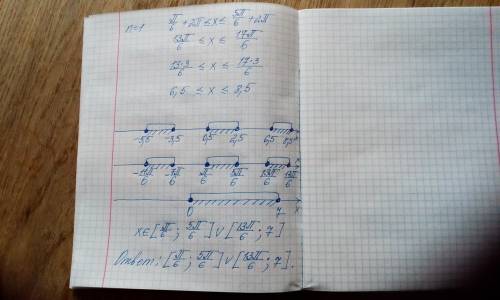 n=1 π/6 + 2π ≤ x ≤ 5π/6 + 2π
13π/6 ≤ x ≤ 17π/6
13·3/6 ≤ x ≤ 17·3/6
6,5 ≤ x ≤ 8,5
-5,5 -3,5 0,5 2,5 6,5 8,5 x
-11π/6 -7π/6 π/6 5π/6 13π/6 17π/6 x
0 7 x
x∈[π/6; 5π/6]∪[13π/6; 7]
Ответ: [π/6; 5π/6]∪[13π/6; 7].